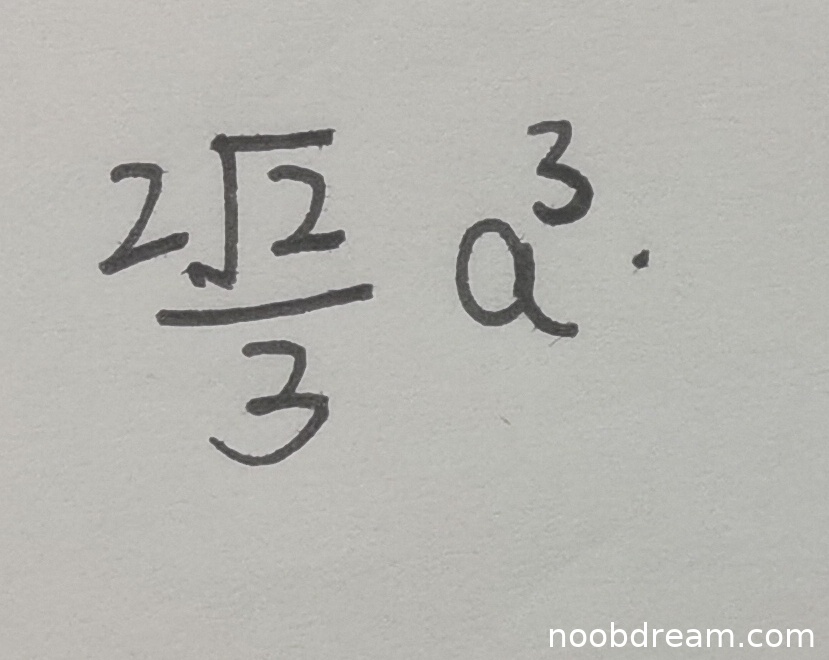 \frac{2\sqrt{2}}{3} a^3 .
noobdream.com